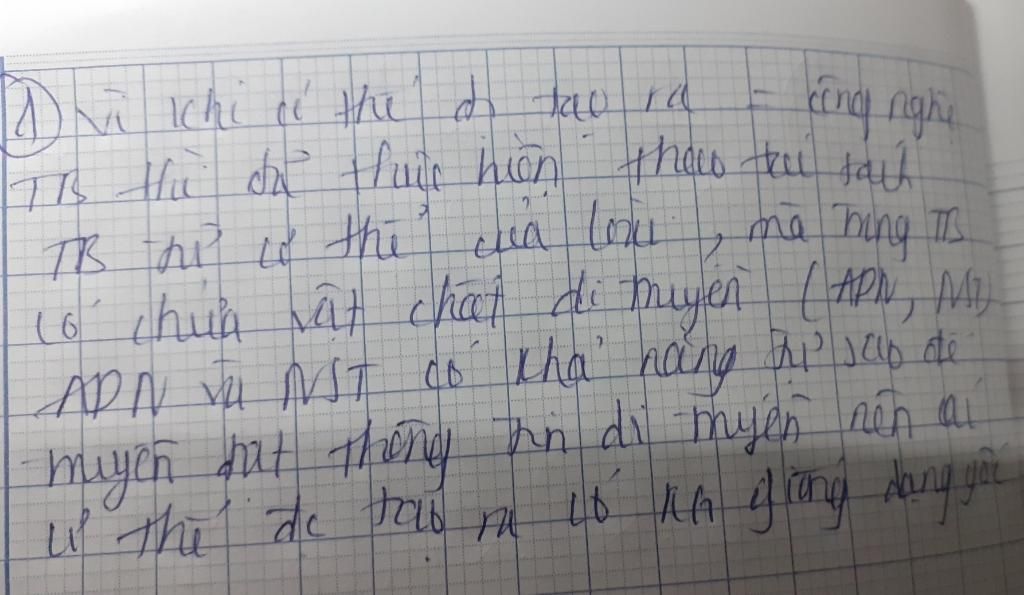 ① Vì khi cá thể đc tạo ra = công nghệ
TB thì đã thực hiện thao tác tách
TB từ cơ thể của loài, mà trong TB
có chứa vật chất di truyền (ADN, NST)
ADN và NST có khả năng tự sao để
truyền đạt thông tin di truyền nên cái
cơ thể đc tạo ra có KH giống dạng gốc